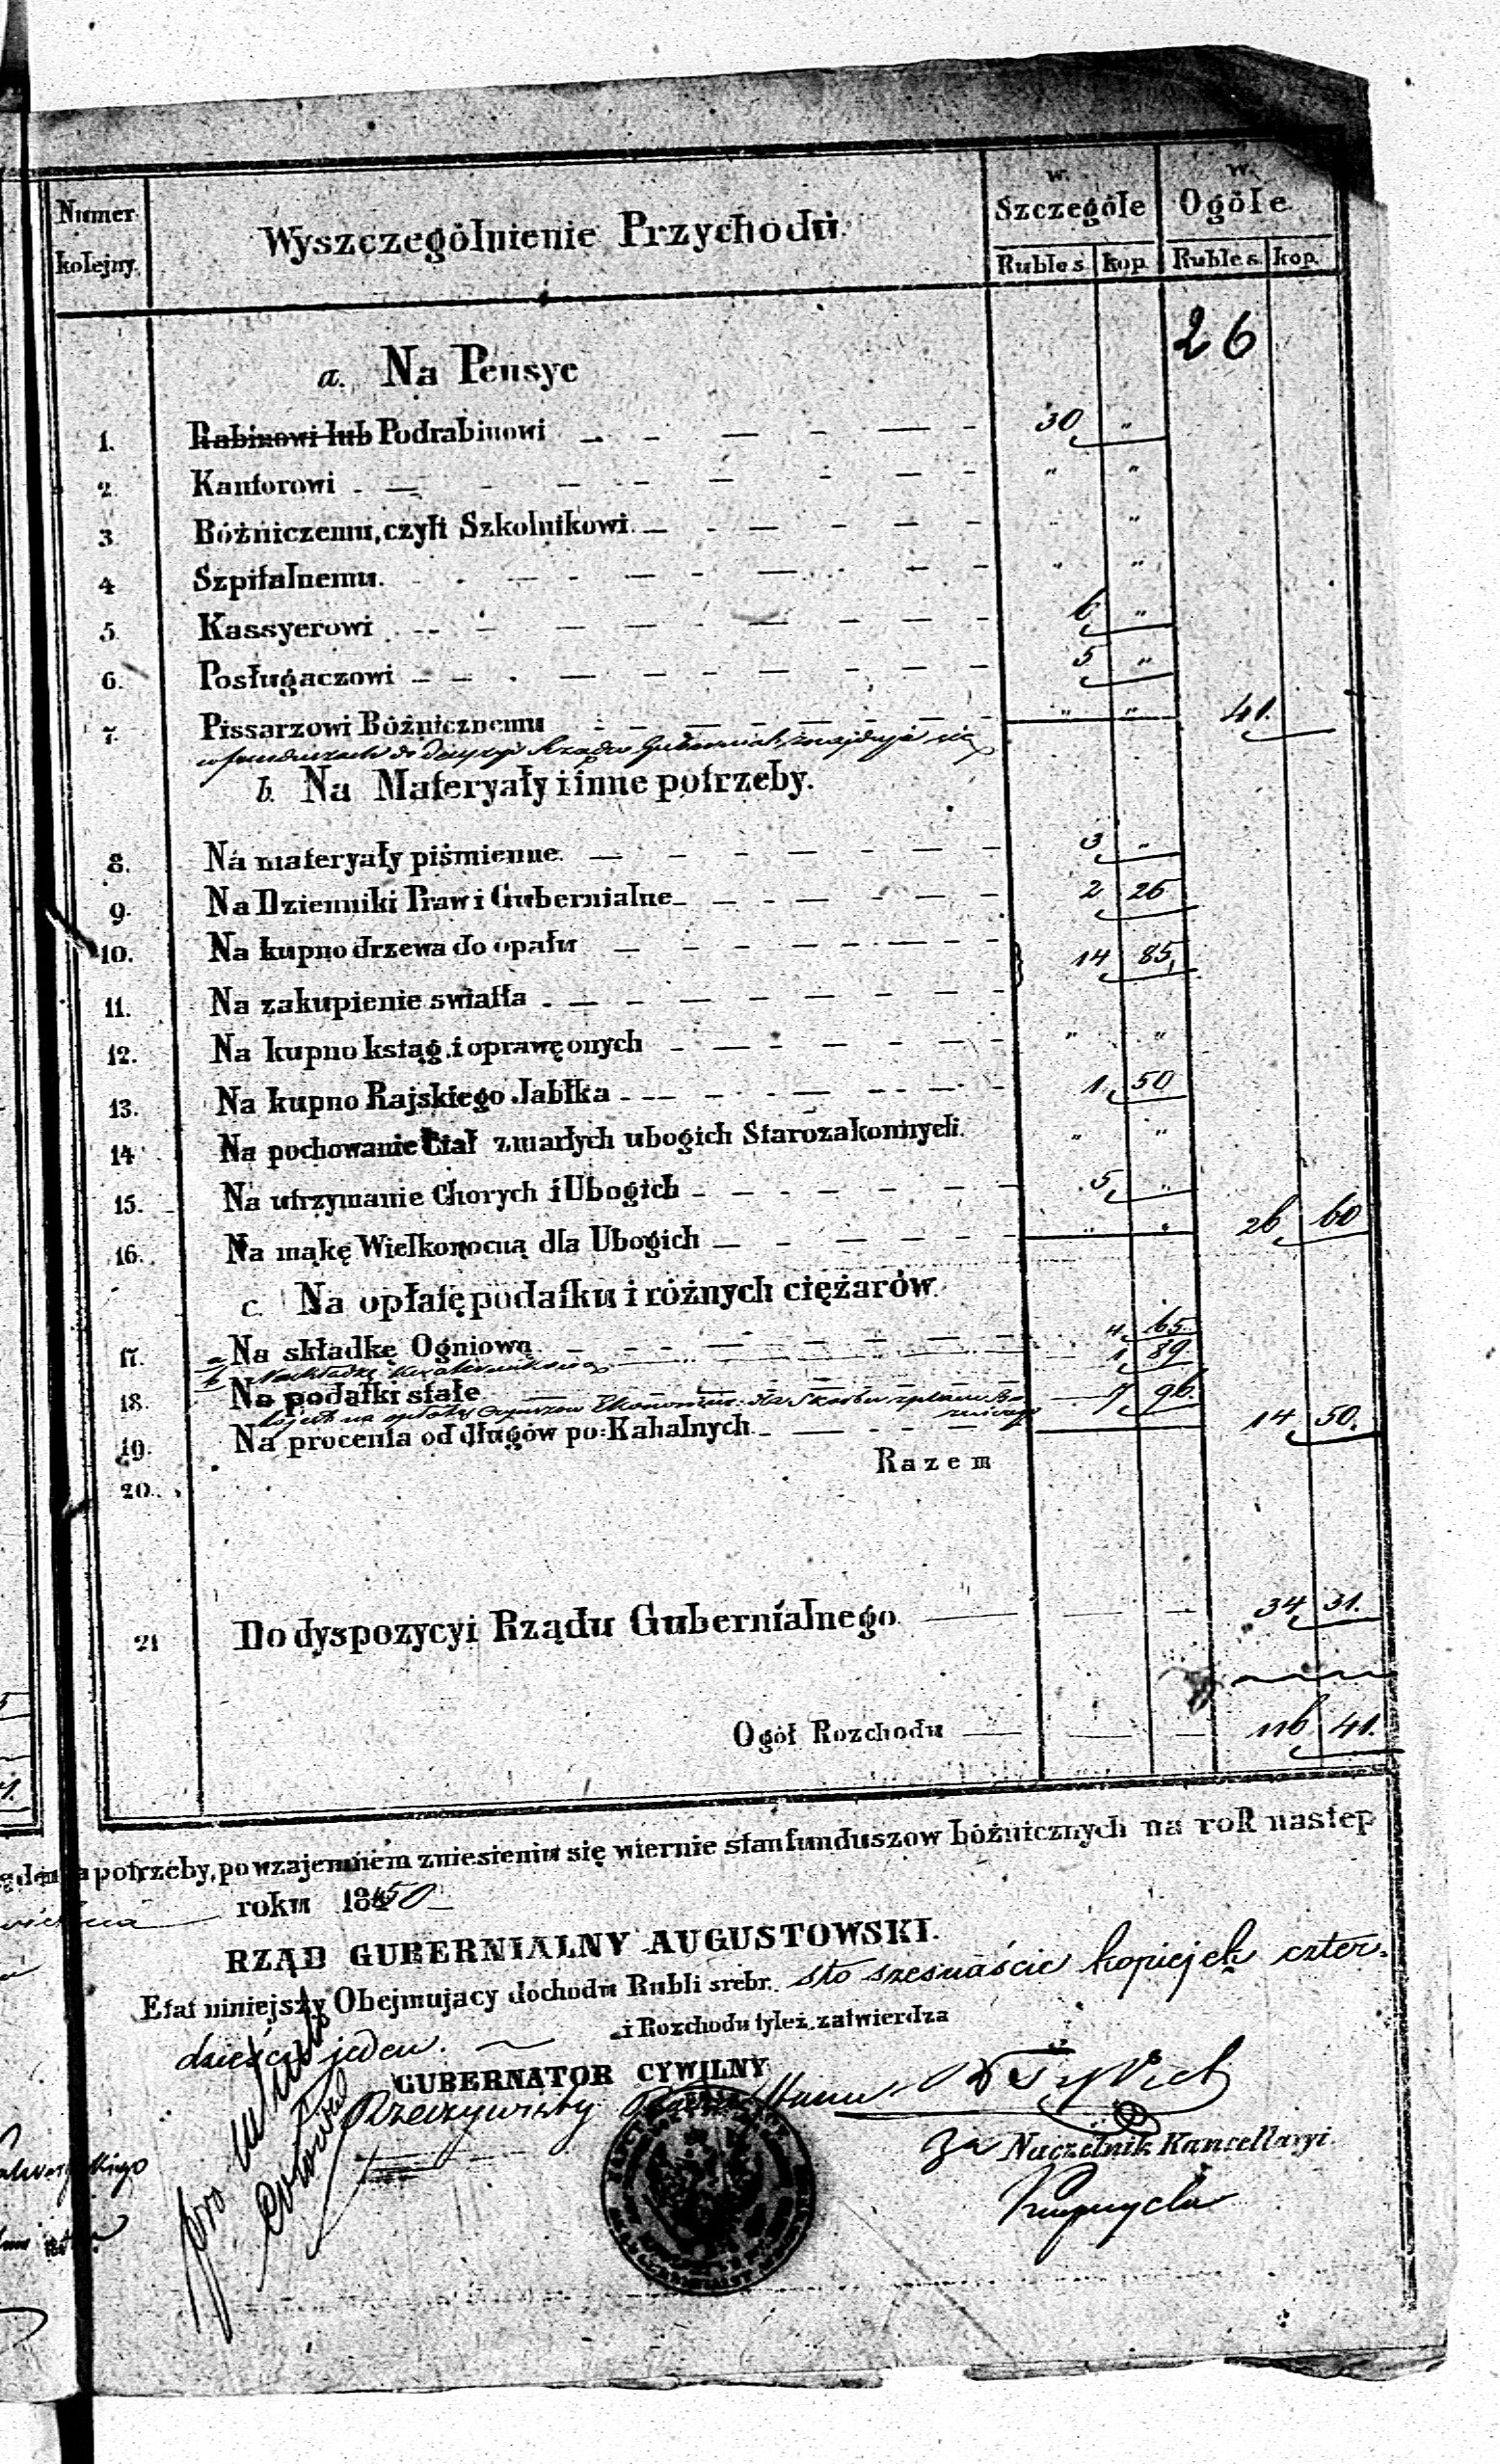 Numer kolejny.
Wyszczególnienie Przychodu.
w. Szczególe
w. Ogóle.
Rubles. kop. Rubles. kop.
26
a. Na Pensye
1. Rabinowi lub Podrabinowi 30 „
2. Kantorowi „ „
3. Bóżniczemu, czyli Szkolnikowi „ „
4 Szpitalnemu. „ „
5. Kassyerowi 6 „
6. Posługaczowi 5 „
7. Pissarzowi Bóżnicznemu „ „ 41.
b. Na Materyały i inne potrzeby.
8. Na materyały piśmienne. 3 „
9. Na Dzienniki Praw i Gubernialne 2 26
10. Na kupno drzewa do opału 14 85
11. Na zakupienie swiatła
12. Na kupno ksiąg i oprawę onych „ „
13. Na kupno Rajskiego Jabłka 1. 50
14 Na pochowanie Ciał zmarłych ubogich Starozakonnych. „ „
15. Na utrzymanie Chorych i Ubogich 5 „
16. Na mąkę Wielkonocną dla Ubogich „ „ 26 60
c. Na opłatę podatku i różnych ciężarów.
17. a Na składkę Ogniową 4 65
b 1 89
18. Na podatki stałe 7 96.
19. Na procenta od długów po: Kahalnych 14 50.
Razem
20.
21 Do dyspozycyi Rządu Gubernialnego 34 31.
Ogół Rozchodu 116 41.
potrzeby, po wzajemném zniesieniu się wiernie stan funduszow bóżnicznych na rok nastep
roku 1850
RZĄD GUBERNIALNY AUGUSTOWSKI.
Etat niniejszy Obejmujacy dochodu Rubli srebr. sto szesnaście kopiejek czter-
dzieści jeden. i Rozchodu tyleż. zatwierdza
GUBERNATOR CYWILNY
Rzeczywisty Stanu
Za Naczelnik Kancellaryi.